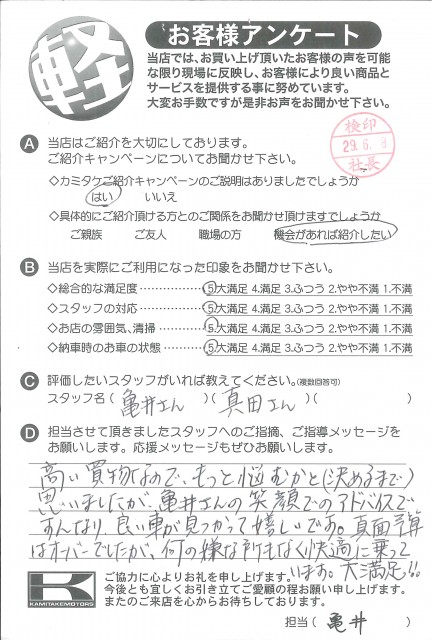 軽
お客様アンケート
当店では、お買い上げ頂いたお客様の声を可能
な限り現場に反映し、お客様により良い商品と
サービスを提供する事に努めています。
大変お手数ですが是非お声をお聞かせ下さい。
検印
29.6.8
社長
A 当店はご紹介を大切にしております。
ご紹介キャンペーンについてお聞かせ下さい。
◇カミタケご紹介キャンペーンのご説明はありましたでしょうか
はい いいえ
◇具体的にご紹介頂ける方とのご関係をお聞かせ頂けますでしょうか
ご親族 ご友人 職場の方 機会があれば紹介したい
B 当店を実際にご利用になった印象をお聞かせ下さい。
◇総合的な満足度………………⑤大満足 4.満足 3.ふつう 2.やや不満 1.不満
◇スタッフの対応………………⑤大満足 4.満足 3.ふつう 2.やや不満 1.不満
◇お店の雰囲気、清掃…………⑤大満足 4.満足 3.ふつう 2.やや不満 1.不満
◇納車時のお車の状態…………⑤大満足 4.満足 3.ふつう 2.やや不満 1.不満
C 評価したいスタッフがいれば教えてください。(複数回答可)
スタッフ名( 亀井さん )( 真田さん )( )
D 担当させて頂きましたスタッフへのご指摘、ご指導メッセージを
お願いします。応援メッセージもぜひお願いします。
高い買物なので、もっと悩むかと(決めるまで)
思いましたが、亀井さんの笑顔でのアドバイスで
すんなり、良い車が見つかって嬉しいです。真面予算
はオーバーでしたが、何の嫌な所もなく快適に乗って
います。大満足!!
K
KAMITAKEMOTORS
ご協力に心よりお礼を申し上げます。
今後とも宜しくお引き立てご愛顧の程お願い申し上げます。
またのご来店を心からお待ちしております。
担当( 亀井 )